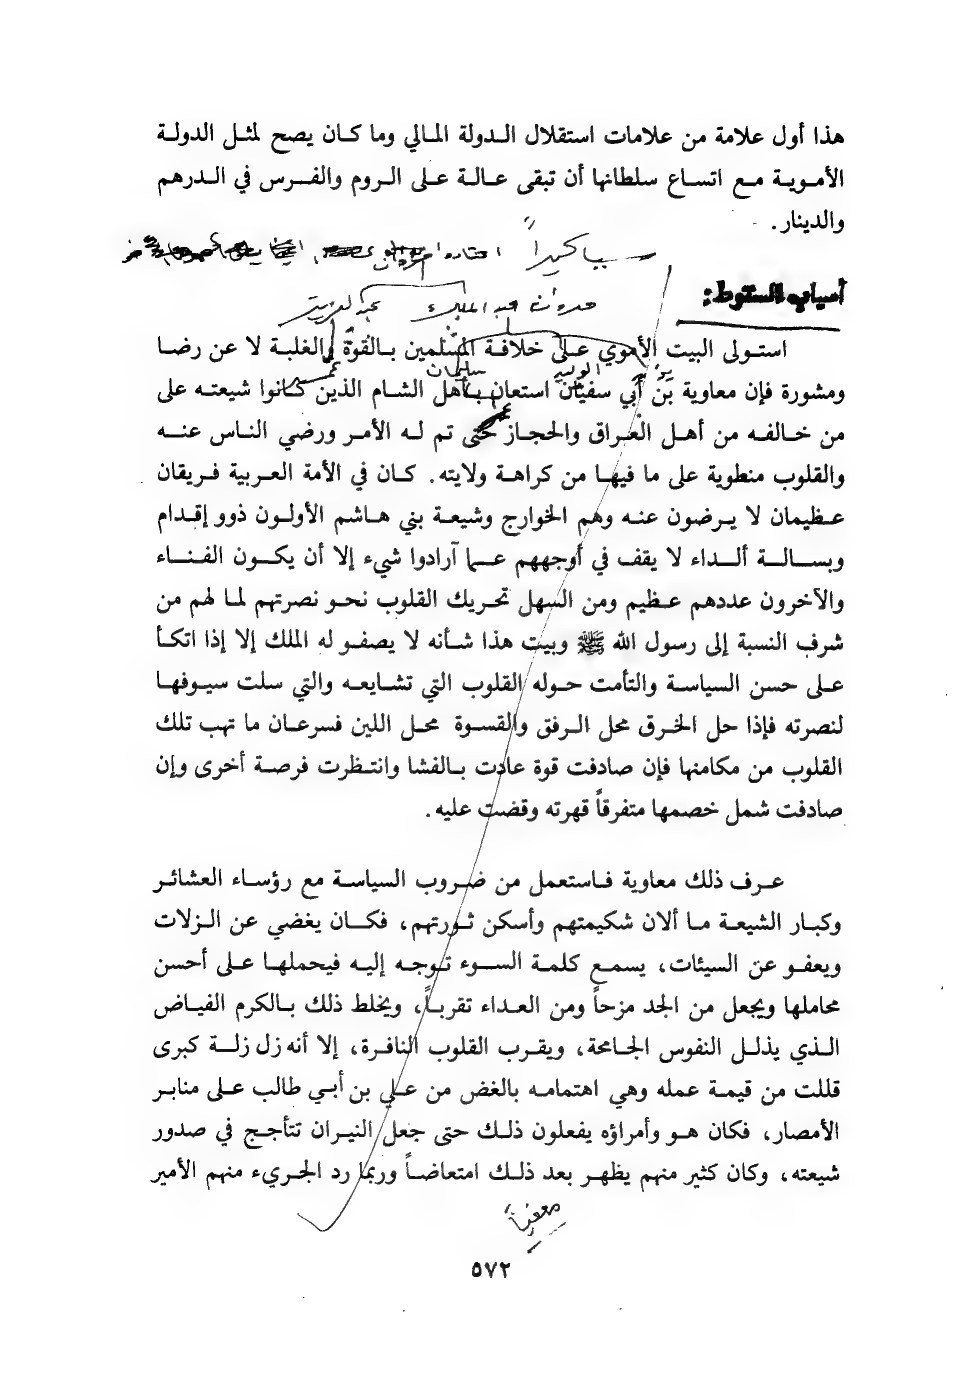 هذا أول علامة من علامات استقلال الدولة المالي وما كان يصح لمثل الدولة
الأموية مع اتساع سلطانها أن تبقى عالة على الروم والفرس في الدرهم
والدينار.
أسباب السقوط:
مروان عبد الملك عبد العزيز
استولى البيت الأموي على خلافة المسلمين بالقوة والغلبة لا عن رضا
يزيد الوليد سليمان عمر
ومشورة فإن معاوية بن أبي سفيان استعان بأهل الشام الذين كانوا شيعته على
من خالفه من أهل العراق والحجاز حتى تم له الأمر ورضي الناس عنه
والقلوب منطوية على ما فيها من كراهة ولايته. كان في الأمة العربية فريقان
عظيمان لا يرضون عنه وهم الخوارج وشيعة بني هاشم الأولون ذوو إقدام
وبسالة ألداء لا يقف في أوجههم عما آرادوا شيء إلا أن يكون الفناء
والآخرون عددهم عظيم ومن السهل تحريك القلوب نحو نصرتهم لما لهم من
شرف النسبة إلى رسول الله ﷺ وبيت هذا شأنه لا يصفو له الملك إلا إذا اتكأ
على حسن السياسة والتأمت حوله القلوب التي تشايعه والتي سلت سيوفها
لنصرته فإذا حل الخرق محل الرفق والقسوة محل اللين فسرعان ما تهب تلك
القلوب من مكامنها فإن صادفت قوة عادت بالفشا وانتظرت فرصة أخرى وإن
صادفت شمل خصمها متفرقاً قهرته وقضت عليه.
عرف ذلك معاوية فاستعمل من ضروب السياسة مع رؤساء العشائر
وكبار الشيعة ما ألان شكيمتهم وأسكن ثورتهم، فكان يغضي عن الزلات
ويعفو عن السيئات، يسمع كلمة السوء توجه إليه فيحملها على أحسن
محاملها ويجعل من الجد مزحاً ومن العداء تقرباً، ويخلط ذلك بالكرم الفياض
الذي يذلل النفوس الجامحة، ويقرب القلوب النافرة، إلا أنه زل زلة كبرى
قللت من قيمة عمله وهي اهتمامه بالغض من علي بن أبي طالب على منابر
الأمصار، فكان هو وأمراؤه يفعلون ذلك حتى جعل النيران تتأجج في صدور
شيعته، وكان كثير منهم يظهر بعد ذلك امتعاضاً وربما رد الجريء منهم الأمير
٥٧٢